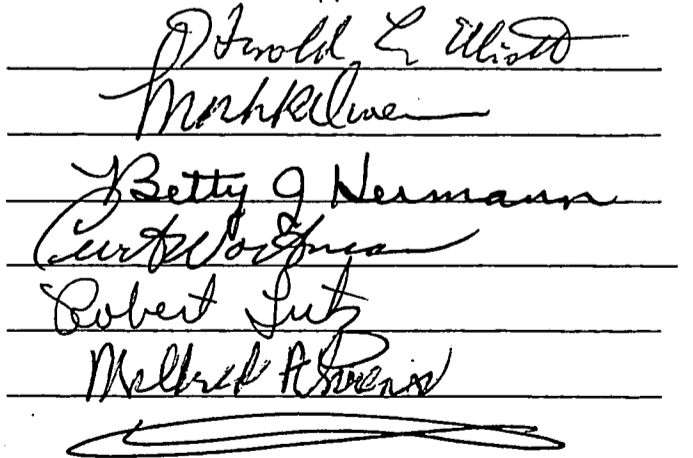 Harold L Elliott
Mark
Betty J Hermann
Curt Workman
Robert Lutz
Mildred A